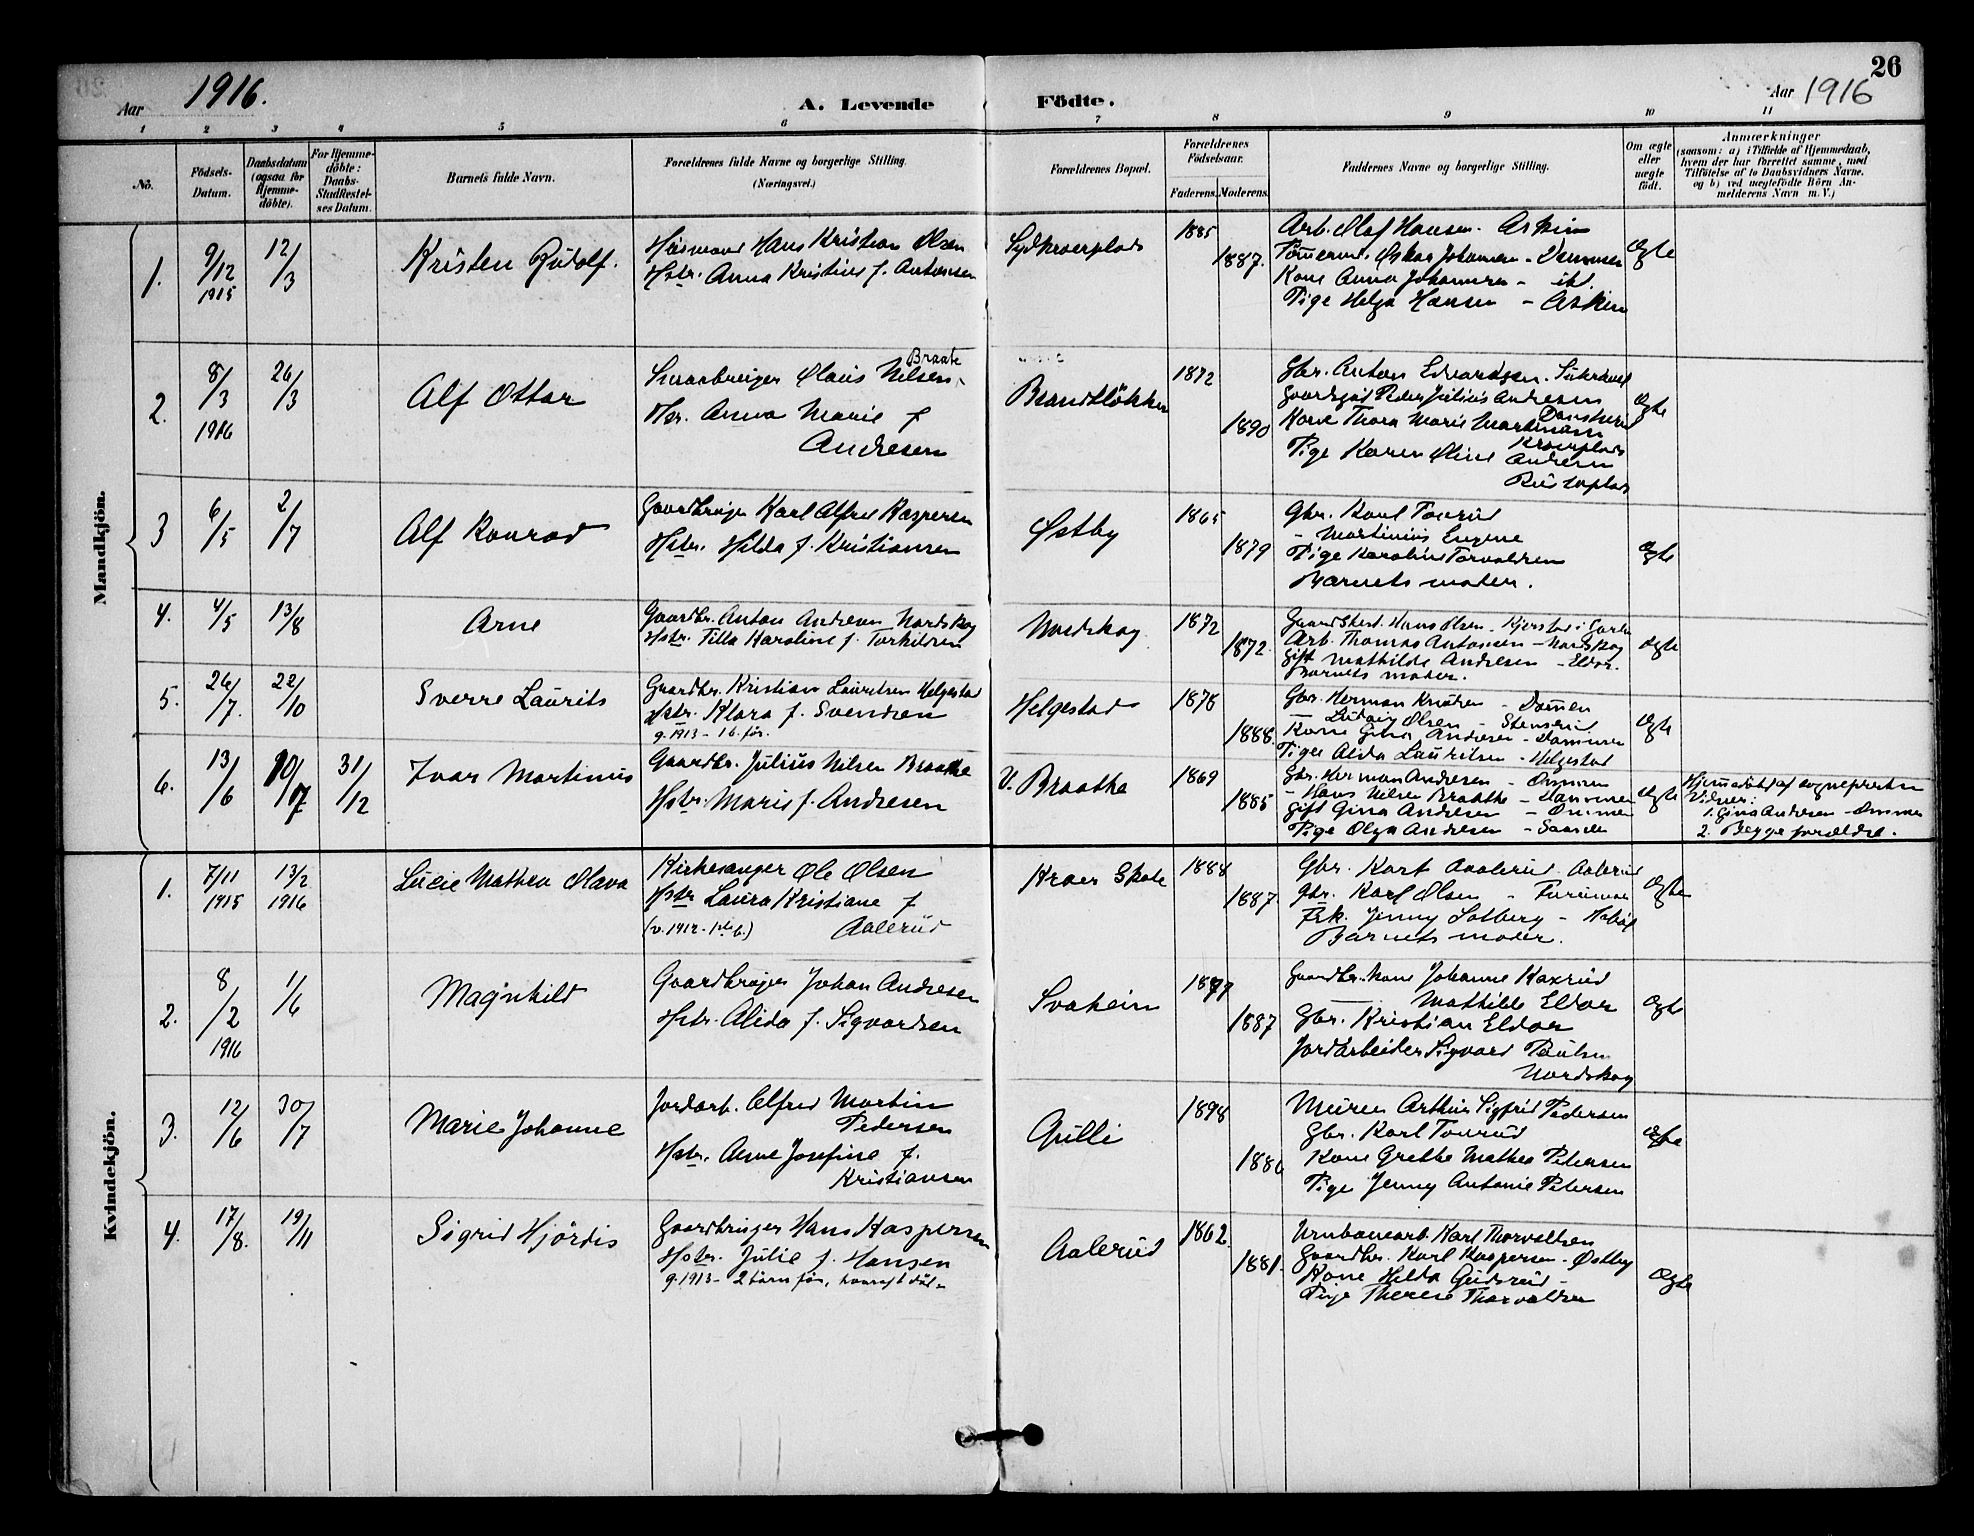 26
Aar 1916.
A. Levende Födte.
Aar 1916
1 2 3 4 5 6 7 8 9 10 11
No.
Födsels-Datum.
Daabsdatum (ogsaa for Hjemme-döbte).
For Hjemme-döbte: Daabs-Stadfæstel-ses Datum.
Barnets fulde Navn.
Forældrenes fulde Navne og borgerlige Stilling. (Næringsvei.)
Forældrenes Bopæl.
Forældrenes Födselsaar.
Faderens. Moderens.
Faddernes Navne og borgerlige Stilling.
Om ægte eller uægte födt.
Anmærkninger
(saasom: a) i Tilfælde af Hjemmedaab,
hvem der har forrettet samme, med
Tilföielse af to Daabsvidners Navne.
og b) ved uægtefödte Börn An-
melderens Navn m. V.)
Mandkjön.
1. 9/12 1915 12/3 Kristen Rudolf.
Husmand Hans Kristian Olsen
Hstr. Anna Kristine f. Antonsen
Sydkroerplads 1885 1887.
Arb. Olaf Hansen. Askim
Kone Anna Johannesen - ibd.
Pige Helga Hansen - Askim
Ægte
2. 8/3 1916 26/3 Alf Ottar
Smaabruger Olaus Nilsen Braate
Hstr. Anna Marie f.
Andresen
Brandtløkken 1872 1890
Gbr. Anton Edvardsen.
Gaardsgut Peder Julius Andresen
Kone Thora Marie
Kroerplads
Pige Karen Oline Andresen
Ægte
3 6/5 2/7 Alf Konrad
Gaardbruger Karl Alfred Kaspersen
Hstr. Hilda f. Kristiansen
Østby 1865 1879
Gbr. Karl Tourud
- Martinius Eugene
Pige Karoline Torvaldsen
Barnets moder.
Ægte
4. 4/5 13/8 Arne
Gaardbr. Anton Andresen Nordskog
Hstr. Tilla Karoline f. Torkildsen
Nordskog 1872 1872.
Hans Olsen.
Arb. Thomas Antonsen - Nordskog
Gift Mathilde Andresen - Eldor.
Barnets moder.
Ægte
5. 26/7. 22/10 Sverre Laurits
Gaardbr. Kristian Lauritsen Helgestad
Hstr. Klara f. Svendsen
g. 1913 - 1 b. før.
Helgestad 1878 1888.
Gbr. Herman Knudsen - Dammen
- Ludvig Olsen - Stenserud
Kone Gina Andresen - Dammen
Pige Alida Lauritsen - Helgestad
Ægte
6. 13/6 10/7 31/12 Ivar Martinius
Gaardbr. Julius Nilsen Braathe
Hstr. Marie f. Andresen
V. Braathe 1869 1885
Gbr. Herman Andresen - Dammen
- Hans Nilsen Braathe - Dammen
Gift Gina Andresen - Dammen
Pige Olga Andresen -
Ægte
Hjemmedøbt af sognepresten
Vidner:
1. Gina Andresen - Dammen
2. Begge forældre.
Kvindekjön.
1. 7/11 1915 13/2 1916 Lucie Mathea Olava
Kirkesanger Ole Olsen
Hstr. Laura Kristiane f.
(v. 1912 - 1ste b.) Aalerud
Kroer Skole 1888 1887.
Gbr. Karl Aalerud Aalerud
Gbr. Karl Olsen -
Frk. Jenny Solberg - Hobøl
Barnets moder.
Ægte
2. 8/2 1916 1/6 Magnhild
Gaardbruger Johan Andresen
Hstr. Alida f. Sigvardsen
Svakein 1887
Gaardbr. kone Johanne Kaxrud
Mathilde Eldor
Gbr. Kristian Eldor
Jordarbeider Sigvard Paulsen
Nordskog
Ægte
3. 12/6 30/7 Marie Johanne
Jordarb. Alfred Martin
Pedersen
Hstr. Anne Josefine f.
Kristiansen
Gulli 1898 1886
Murer Arthur Sigfrid Pedersen
Gbr. Karl Tourud
Kone Grethe Mathea Petersen
Pige Jenny Antonie Petersen
Ægte
4. 17/8. 19/11 Sigrid Hjørdis
Gaardbruger Hans Kaspersen
Hstr. Julie f. Hansen
g. 1913 - 2 børn før,
Aalerud 1862. 1881.
Karl Thorvaldsen
Gaardbr. Karl Kaspersen - Østby
Kone Hilda Gudsrud -
Pige Therese Thorvaldsen
Ægte